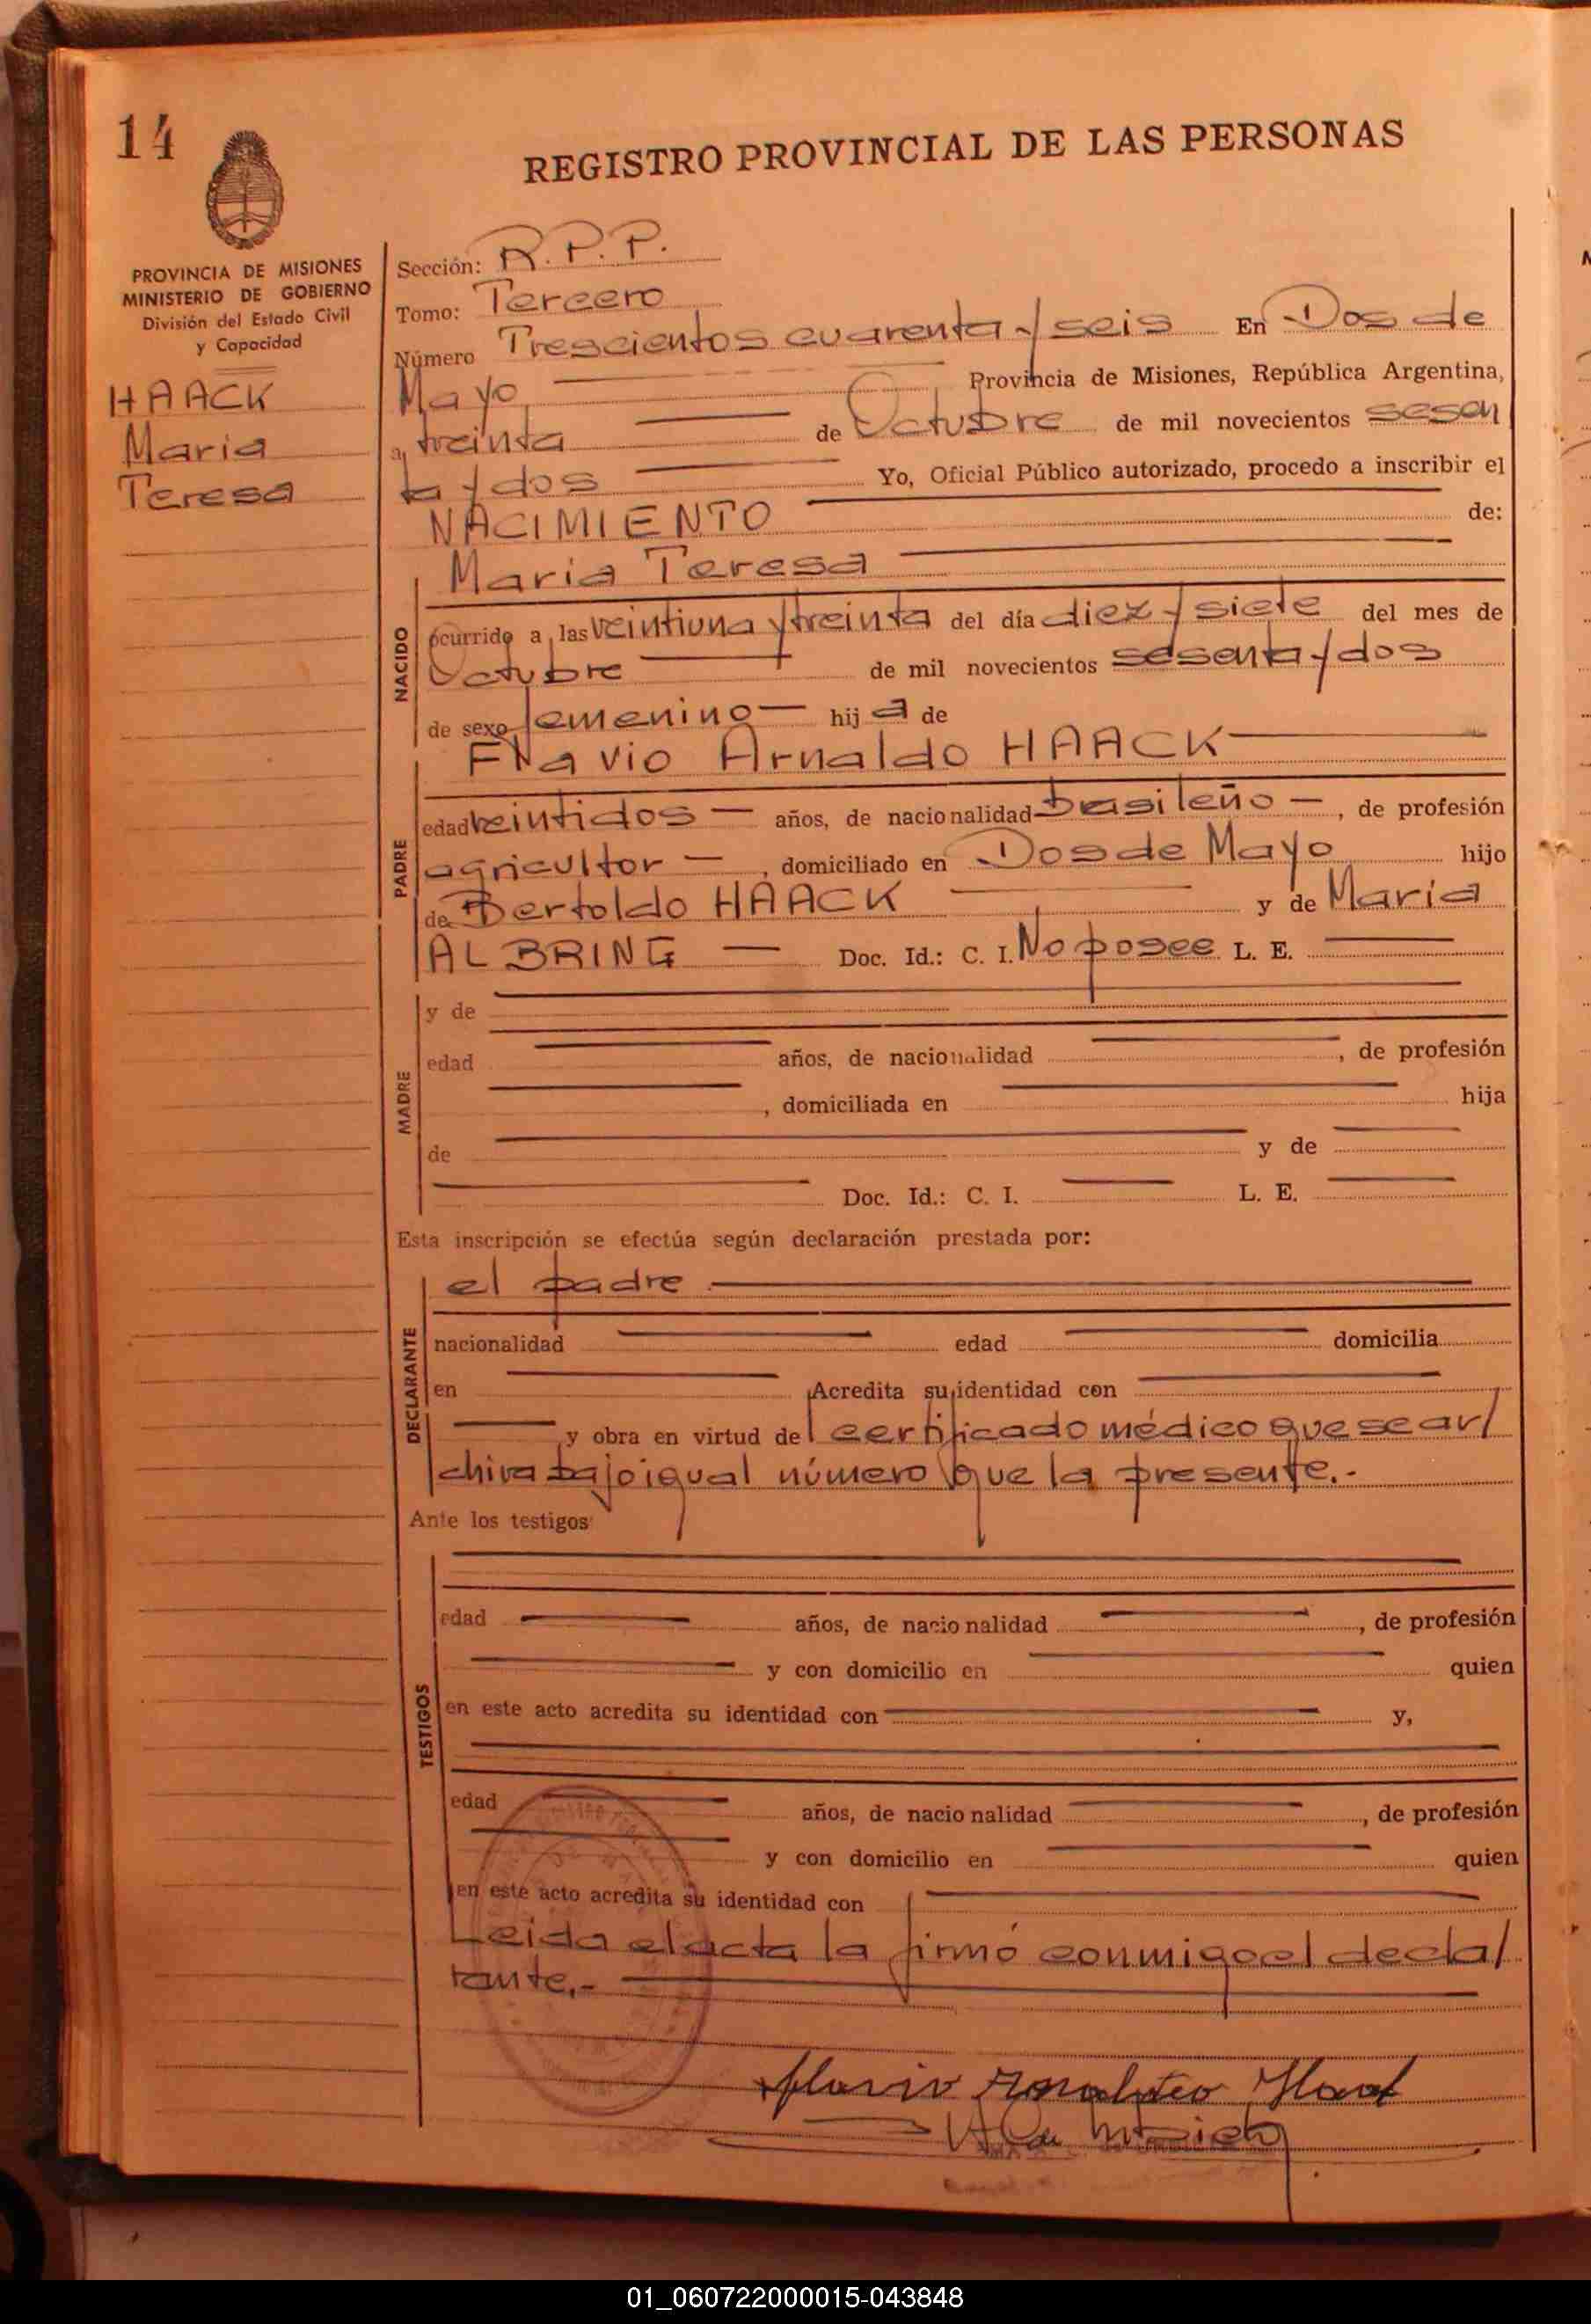 14
REGISTRO PROVINCIAL DE LAS PERSONAS
PROVINCIA DE MISIONES
MINISTERIO DE GOBIERNO
División del Estado Civil
y Capacidad
HAACK
Maria
Teresa
Sección: R.P.P.
Tomo: Tercero
Número Trescientos cuarenta y seis En Dos de
Mayo Provincia de Misiones, República Argentina,
a, treinta de Octubre de mil novecientos sesen
ta y dos Yo, Oficial Público autorizado, procedo a inscribir el
NACIMIENTO de:
Maria Teresa
NACIDO
ocurrido a las veintiuna y treinta del día diez y siete del mes de
Octubre de mil novecientos sesenta y dos
de sexo femenino — hij a de
Flavio Arnaldo HAACK
PADRE
edad veintidos — años, de nacionalidad brasileño —, de profesión
agricultor —, domiciliado en Dos de Mayo hijo
de Bertoldo HAACK y de Maria
ALBRING — Doc. Id.: C. I. No posee L. E.
MADRE
y de
edad años, de nacionalidad , de profesión
, domiciliada en hija
de y de
Doc. Id.: C. I. L. E.
Esta inscripción se efectúa según declaración prestada por:
DECLARANTE
el padre
nacionalidad edad domicilia
en Acredita su identidad con
y obra en virtud de certificado médico que se ar/
chiva bajo igual número que la presente.-
Ante los testigos
TESTIGOS
edad años, de nacionalidad , de profesión
y con domicilio en quien
en este acto acredita su identidad con y,
edad años, de nacionalidad , de profesión
y con domicilio en quien
en este acto acredita su identidad con
Leida el acta la firmó conmigo el decla/
rante.-
01_060722000015-043848